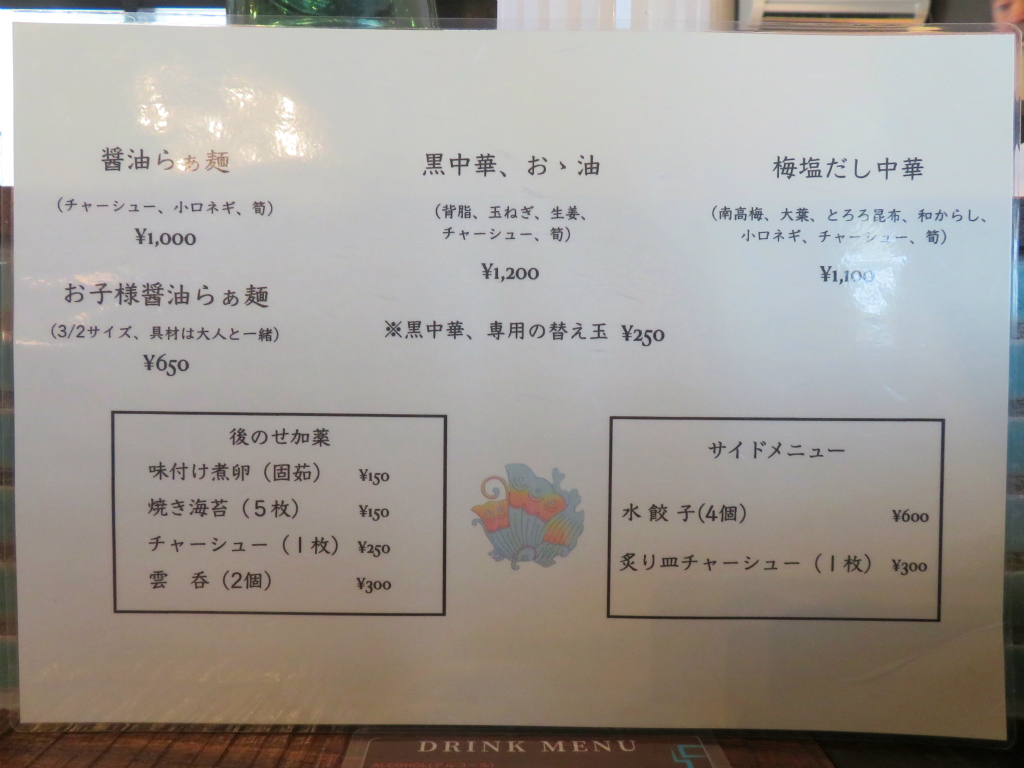 醤油らぁ麺
(チャーシュー、小口ネギ、筍)
¥1,000
お子様醤油らぁ麺
(3/2サイズ、具材は大人と一緒)
¥650
黒中華、おゝ油
(背脂、玉ねぎ、生姜、
チャーシュー、筍)
¥1,200
※黒中華、専用の替え玉 ¥250
梅塩だし中華
(南高梅、大葉、とろろ昆布、和からし、
小口ネギ、チャーシュー、筍)
¥1,100
後のせ加薬
味付け煮卵(固茹) ¥150
焼き海苔(5枚) ¥150
チャーシュー(1枚) ¥250
雲 呑(2個) ¥300
サイドメニュー
水 餃 子(4個) ¥600
炙り皿チャーシュー(1枚) ¥300
DRINK MENU
ALCOHOL(アルコール)